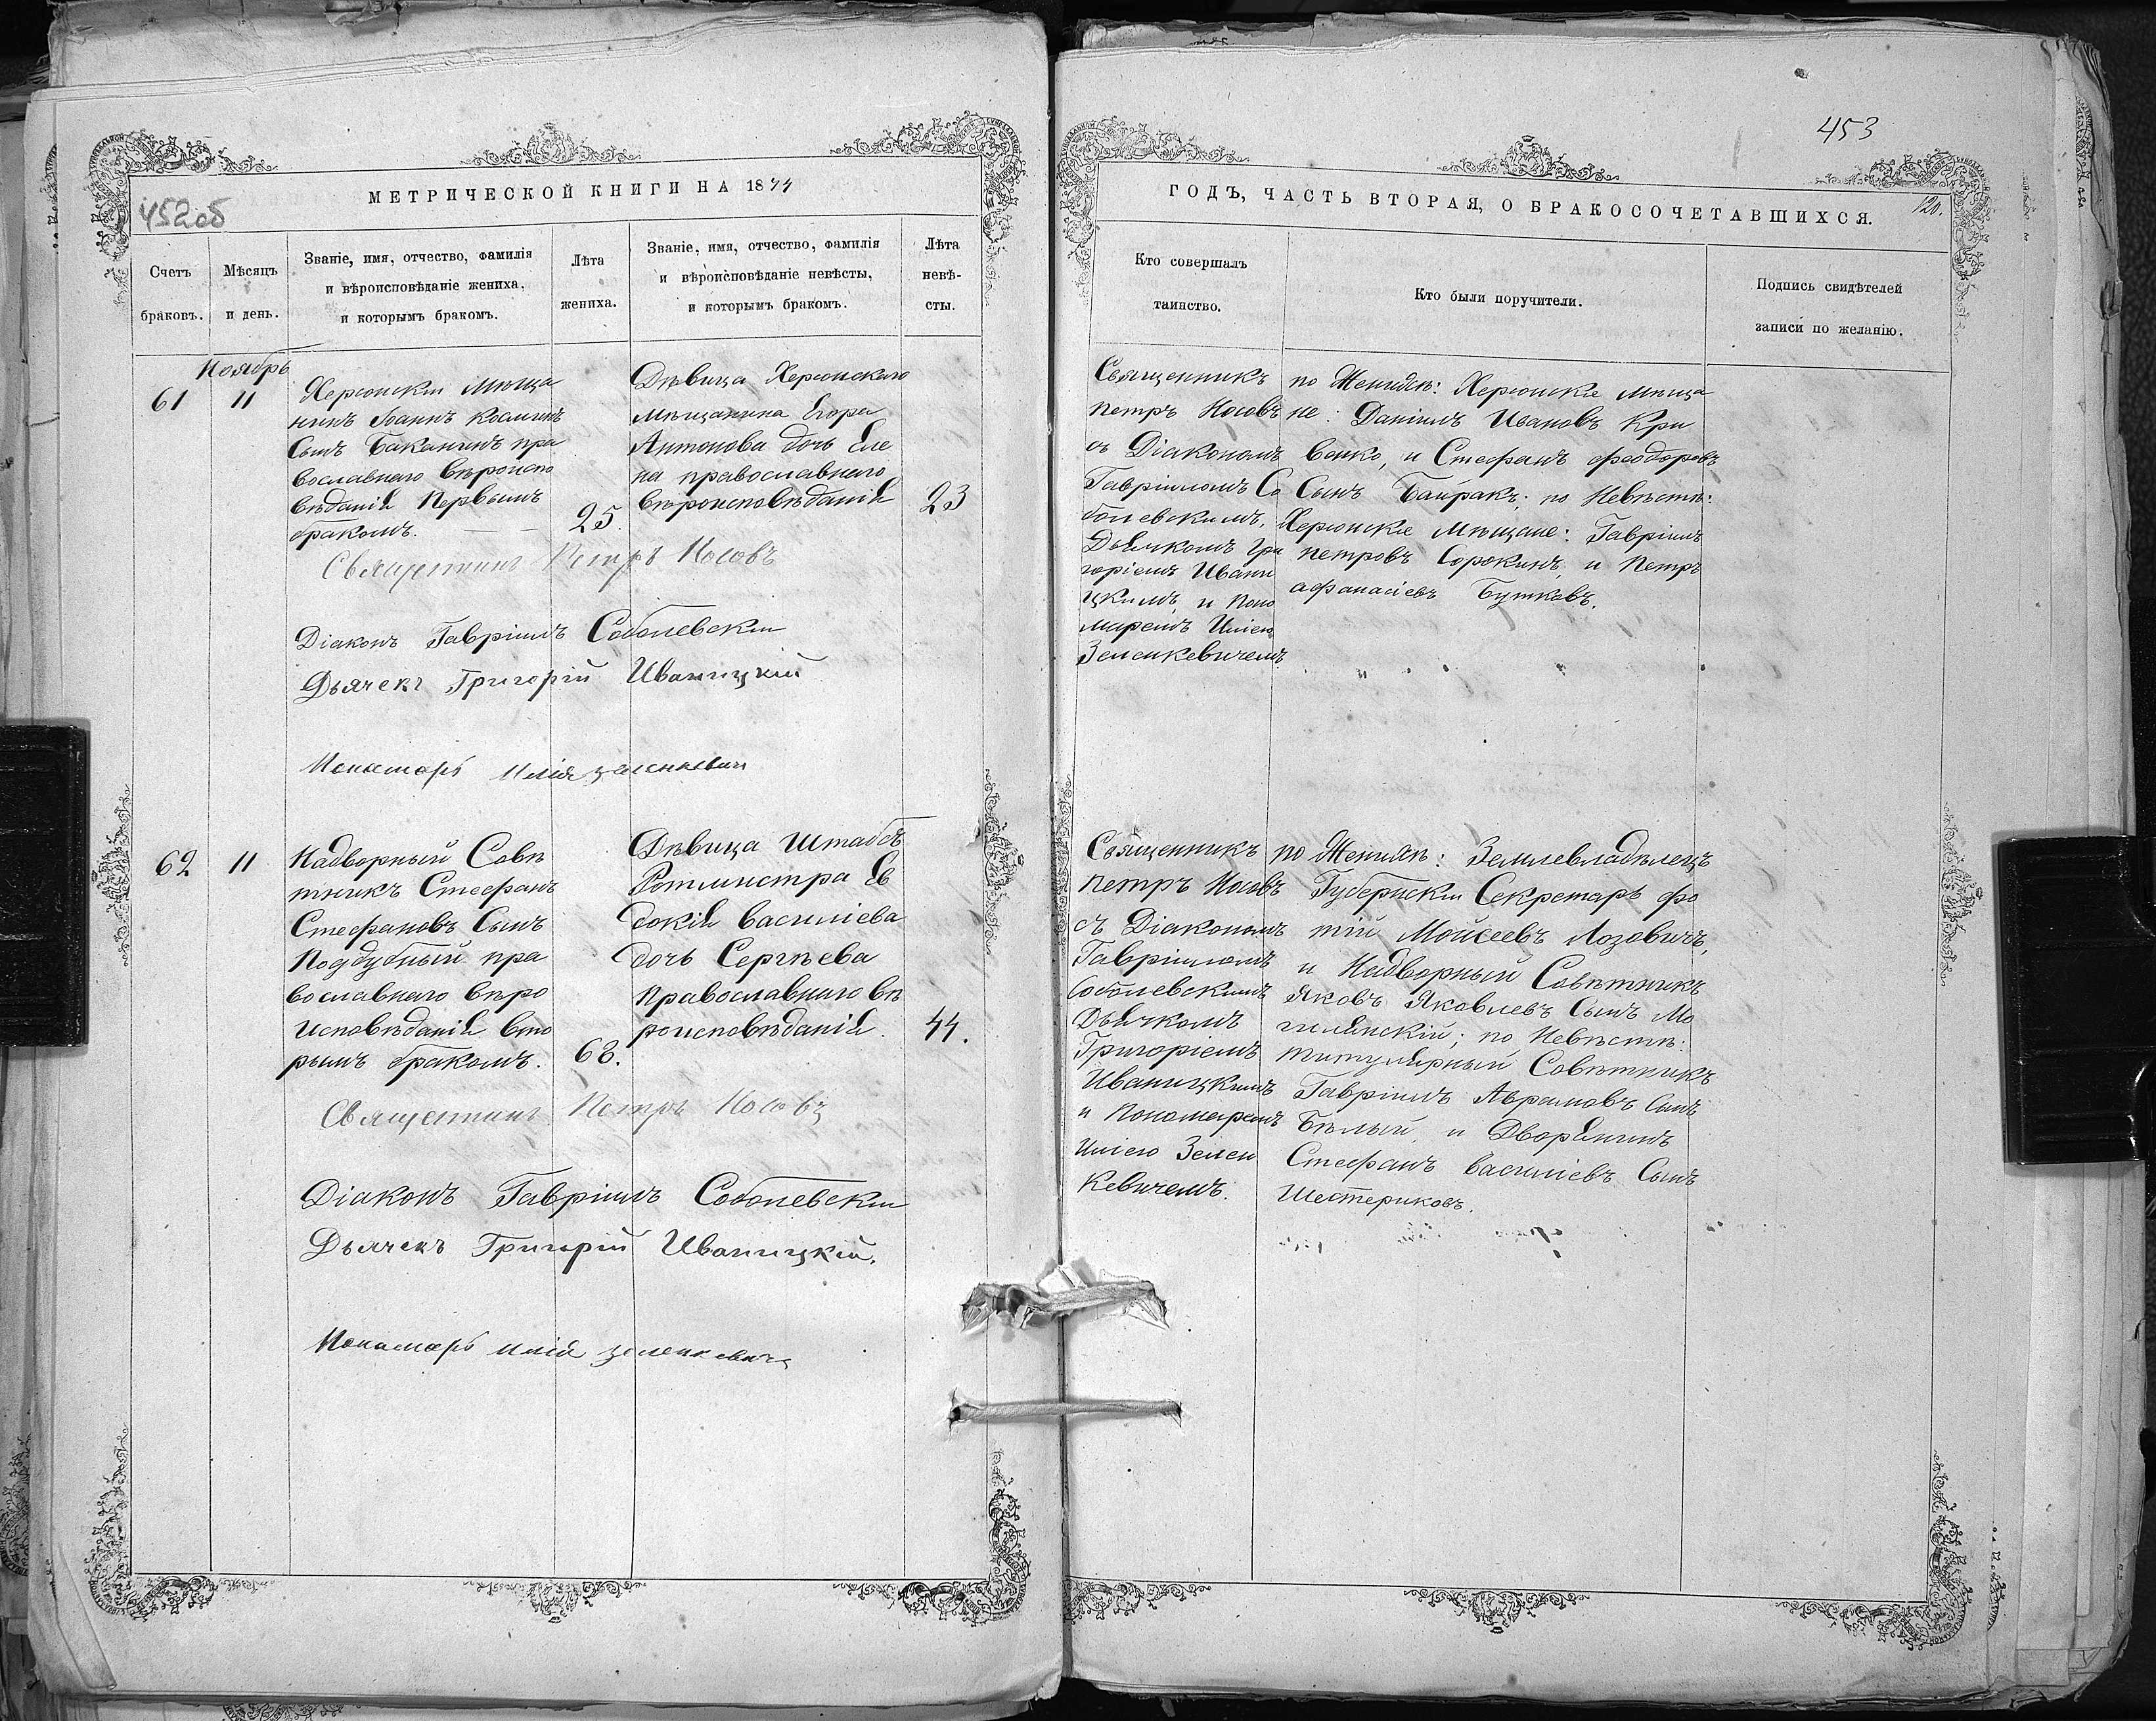 МЕТРИЧЕСКОЙ КНИГИ НА 1874
452об
Счетъ
браковъ.
Мѣсяцъ
и день.
Званіе, имя, отчество, фамилія
и вѣроисповѣданіе жениха,
и которымъ бракомъ.
Лѣта
жениха.
Званіе, имя, отчество, фамилія
и вѣроисповѣданіе невѣсты,
и которымъ бракомъ.
Лѣта
невѣ-
сты.
Ноябрь
61
11
Херсонскій Мѣща
нинъ Іоаннъ Косминъ
Сынъ Баканчинъ пра
вославнаго вѣроиспо
вѣданія Первымъ
бракомъ.
25.
Дѣвица Херсонскаго
Мѣщанина Егора
Антонова дочь Еле
на православнаго
вѣроисповѣданія
23
Священникъ Петръ Носовъ
Діаконъ Гавріилъ Соболевскій
Дьячекъ Григорій Иваницкій
Понамарь Илія Зеленкевич
62
11
Надворный Совѣ
тникъ Стефанъ
Стефановъ Сынъ
Поддубный пра
вославнаго вѣро
исповѣданія вто
рымъ бракомъ.
68.
Дѣвица Штабсъ
Ротмистра Ев
докія Василіева
дочь Сергѣева
Православнаго вѣ
роисповѣданія.
44.
Священникъ Петръ Носовъ
Діаконъ Гавріилъ Соболевскій
Дьячекъ Григорій Иваницкій.
Понамарь Илія Зеленкевичъ
453
ГОДЪ, ЧАСТЬ ВТОРАЯ, О БРАКОСОЧЕТАВШИХСЯ.
120.
Кто совершалъ
таинство.
Кто были поручители.
Подпись свидѣтелей
записи по желанію.
Священникъ
Петръ Носовъ
съ Діакономъ
Гавріиломъ Со
болевскимъ,
Дьячкомъ Гри
горіемъ Ивани
цкимъ, и Поно
маремъ Иліею
Зеленкевичемъ.
по Женихѣ: Херсонскіе мѣща
не: Даніилъ Ивановъ Кри
венко, и Стефанъ Феодоровъ
Сынъ Байракъ; по Невѣстѣ:
Херсонскіе Мѣщане: Гавріилъ
Петровъ Сорокинъ, и Петръ
Афанасіевъ Бутковъ.
Священникъ
Петръ Носовъ
съ Діакономъ
Гавріиломъ
Соболевскимъ
Дьячкомъ
Григоріемъ
Иваницкимъ
и Пономаремъ
Иліею Зелен
кевичемъ.
по Женихѣ: Землевладѣлецъ
Губернскій Секретарь Фо
тій Моисеевъ Лозовичъ,
и Надворный Совѣтникъ
Яковъ Яковлевъ Сынъ Мо
гилянскій; по Невѣстѣ:
титулярный Совѣтникъ
Гавріилъ Аврамовъ Сынъ
Бѣлый и Дворянинъ
Стефанъ Василіевъ Сынъ
Шестериковъ.